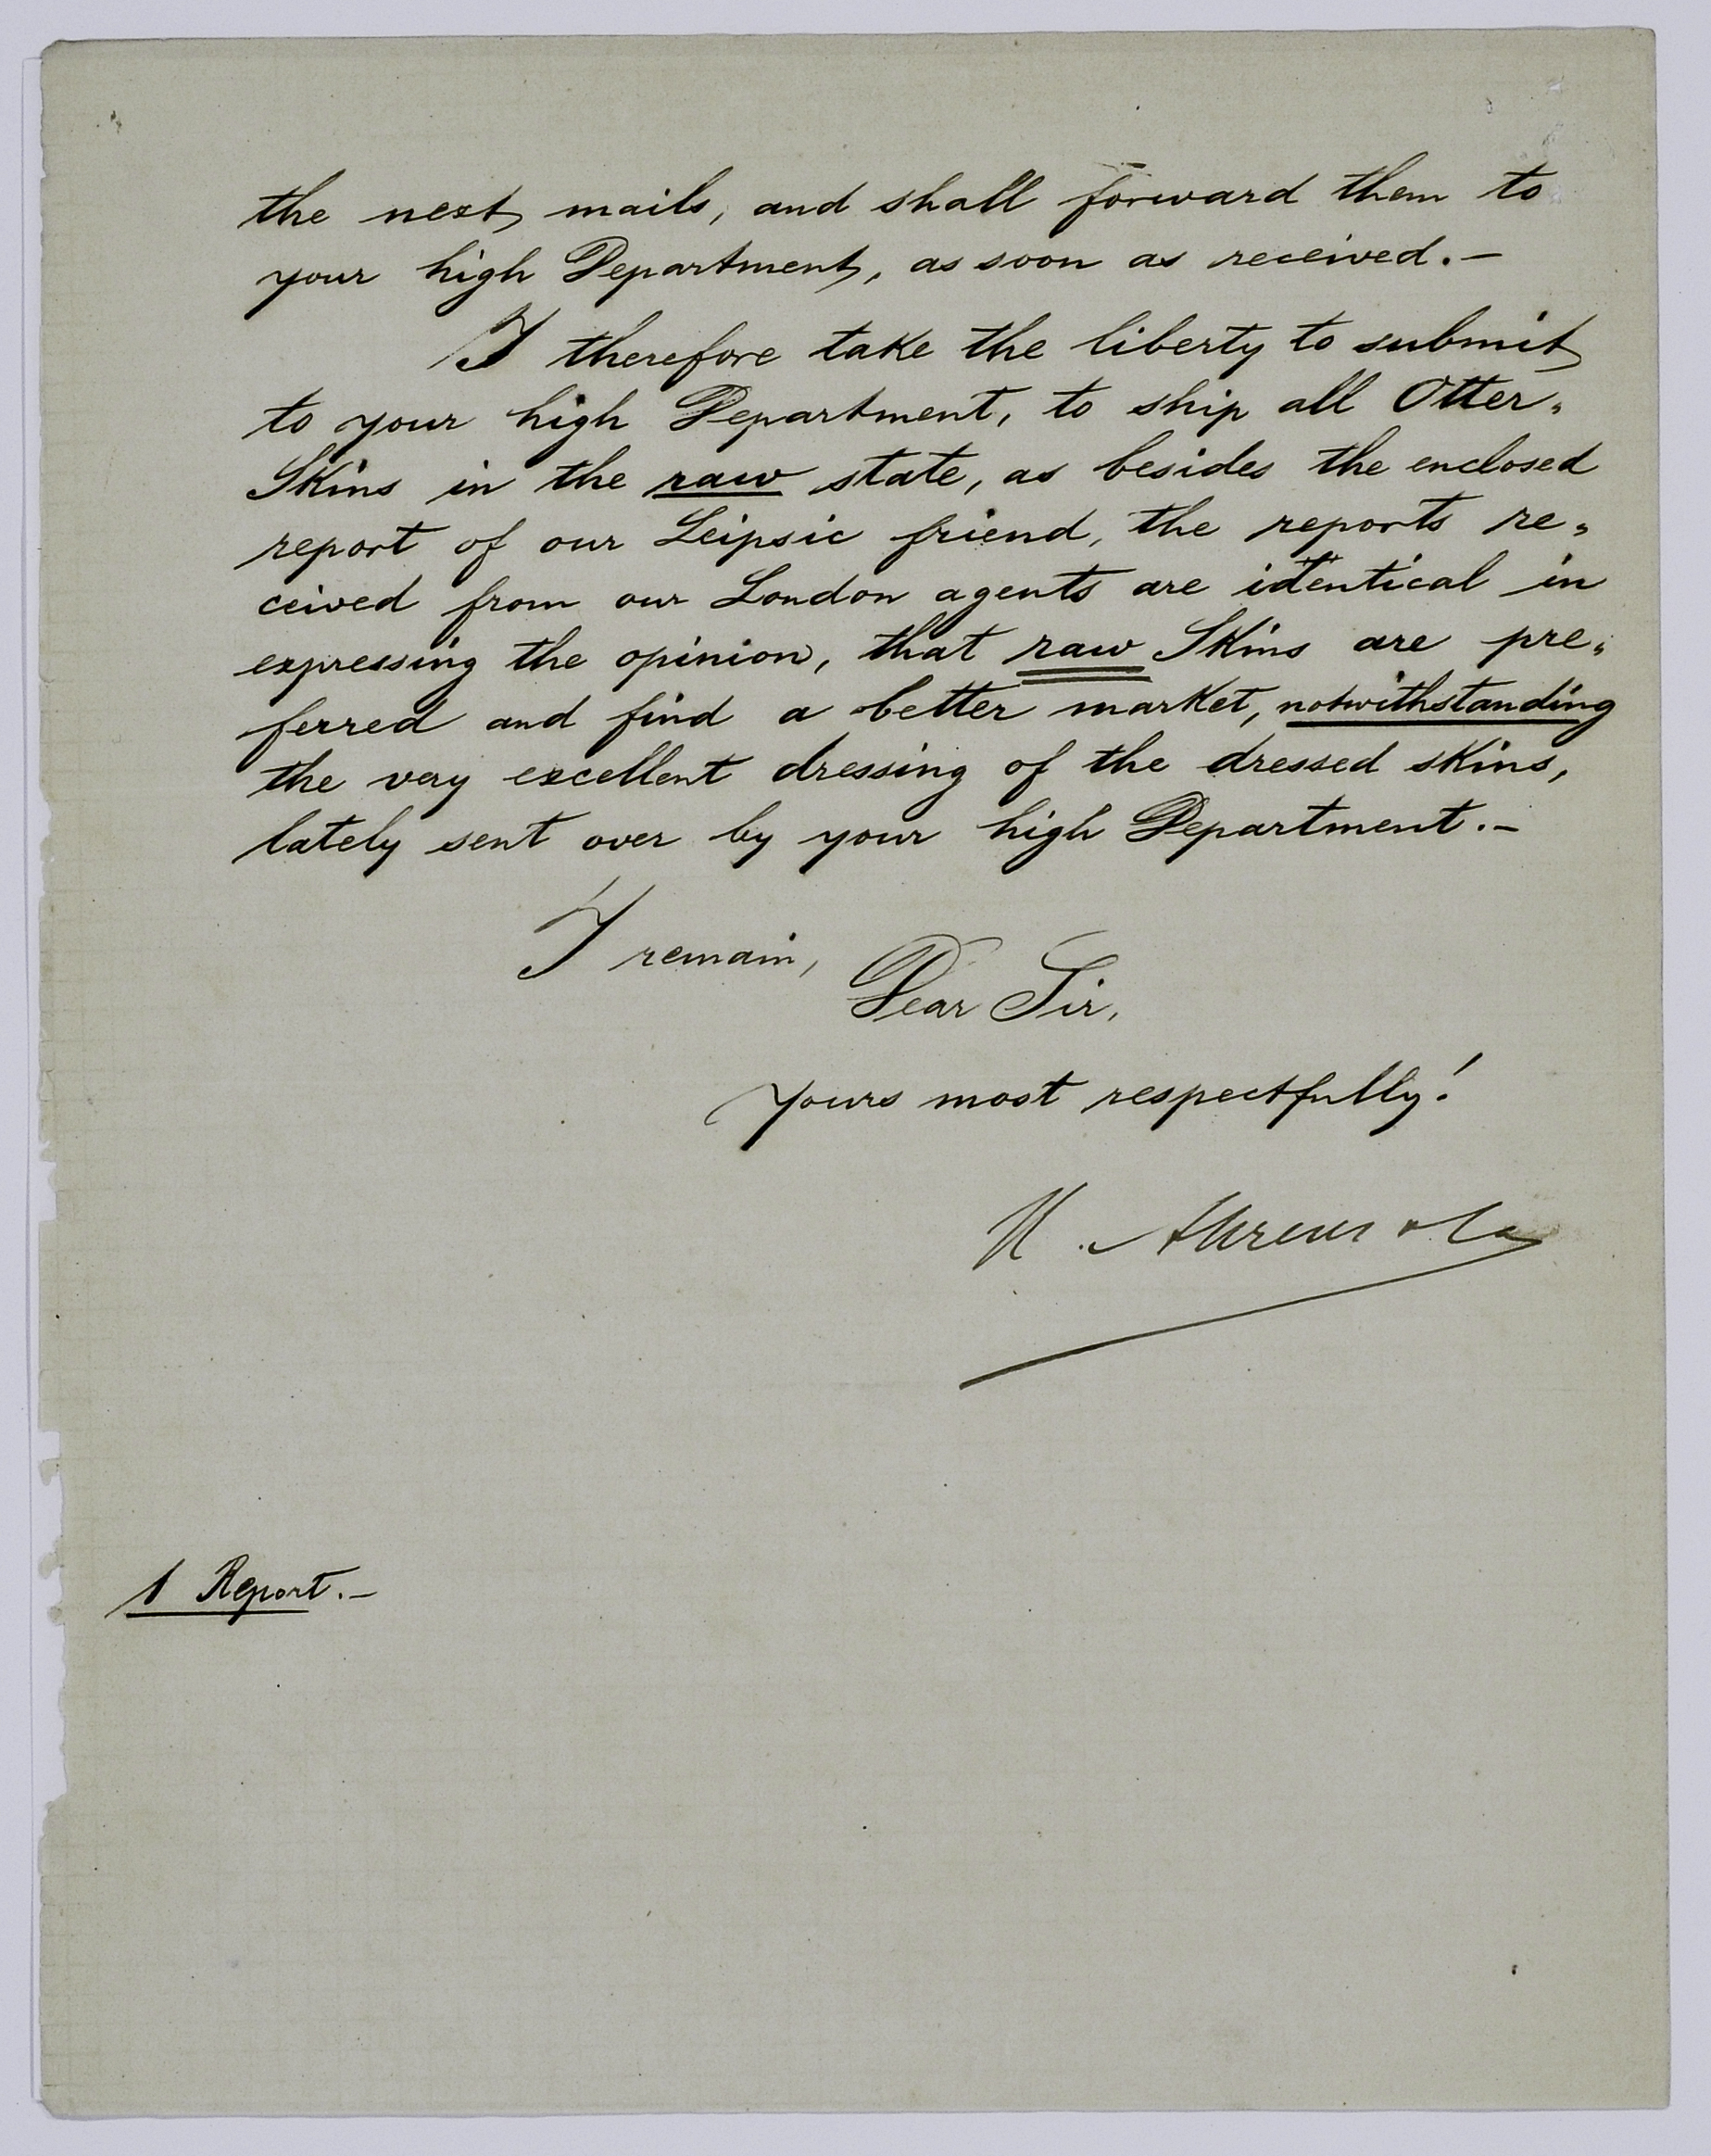 the next mails, and shall forward them to
your high Department, as soon as received. —
I therefore take the liberty to submit
to your high Department, to ship all Otter-
Skins in the raw state, as besides the enclosed
report of our Leipsic friend, the reports re-
ceived from our London agents are identical in
expressing the opinion, that raw Skins are pre-
ferred and find a better market, notwithstanding
the very excellent dressing of the dressed skins,
lately sent over by your high Department. —
I remain,
Dear Sir,
yours most respectfully!
H. Ahrens & Co
1 Report. —